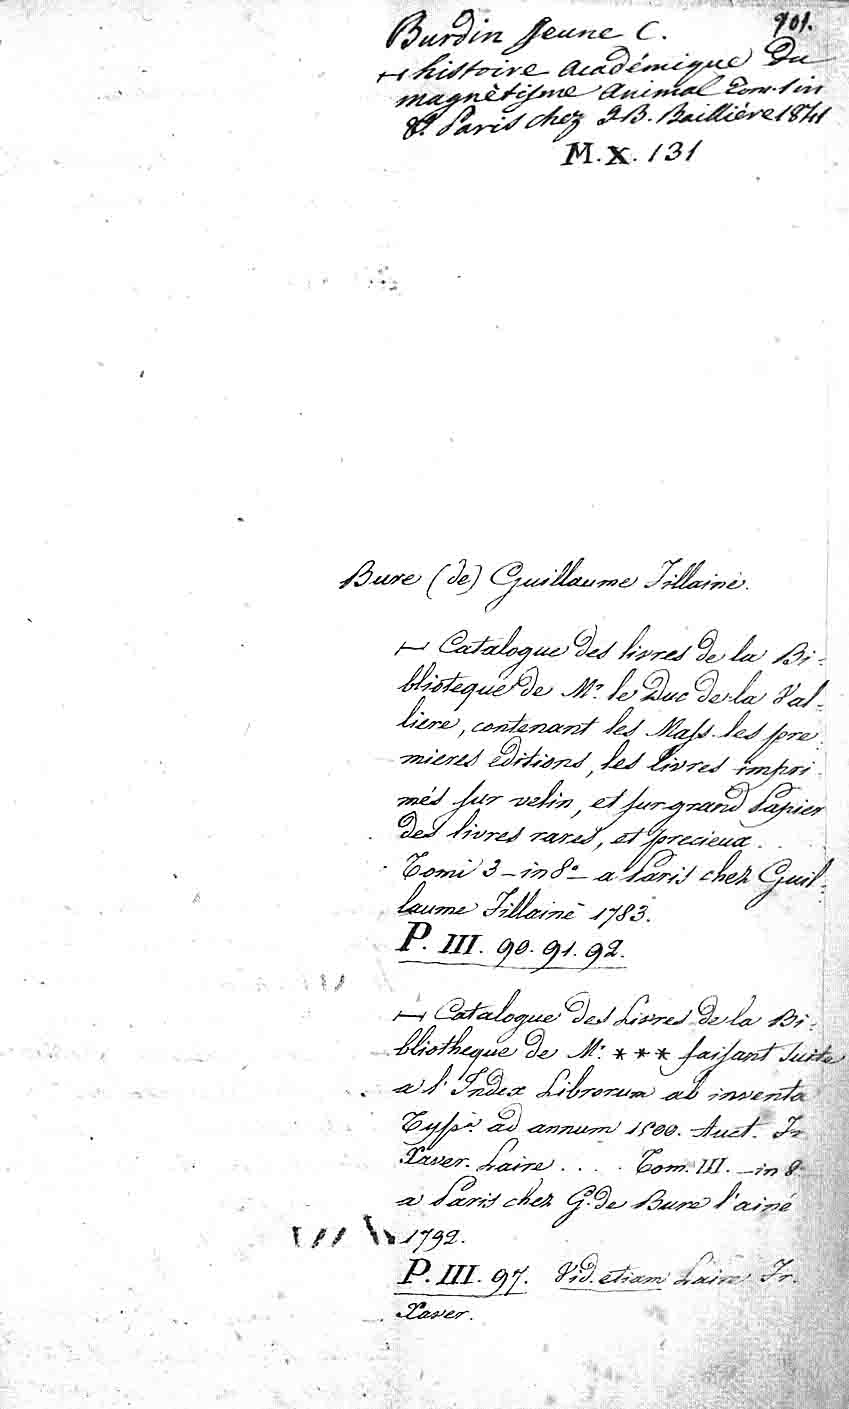 901.
Burdin Jeune C.
— histoire académique du
magnètisme animal Tom. 1 in
8.º Paris chez J-B. Baillière 1841
M. X. 131
Bure (de) Guillaume Fillainé.
— Catalogue des livres de la Bi-
blioteque de M.r le Duc de la Val-
liere, contenant les Mass. les pre-
mieres editions, les livres impri-
més sur velin, et sur grand Papier
des livres rares, et precieux . .
Tomi 3 – in 8.º – a Paris chez Guil-
laume Fillainé 1783.
P. III. 90. 91. 92.
— Catalogue des Livres de la Bi-
bliotheque de M.r *** faisant suite
a l'Index Librorum ab inventa
Typ.a ad annum 1500. Auct. Fr.
Xaver. Laire . . . . Tom. III. – in 8.º
a Paris chez G. de Bure l'ainé
1792.
P. III. 97. Vid. etiam Laire Fr.
Xaver.